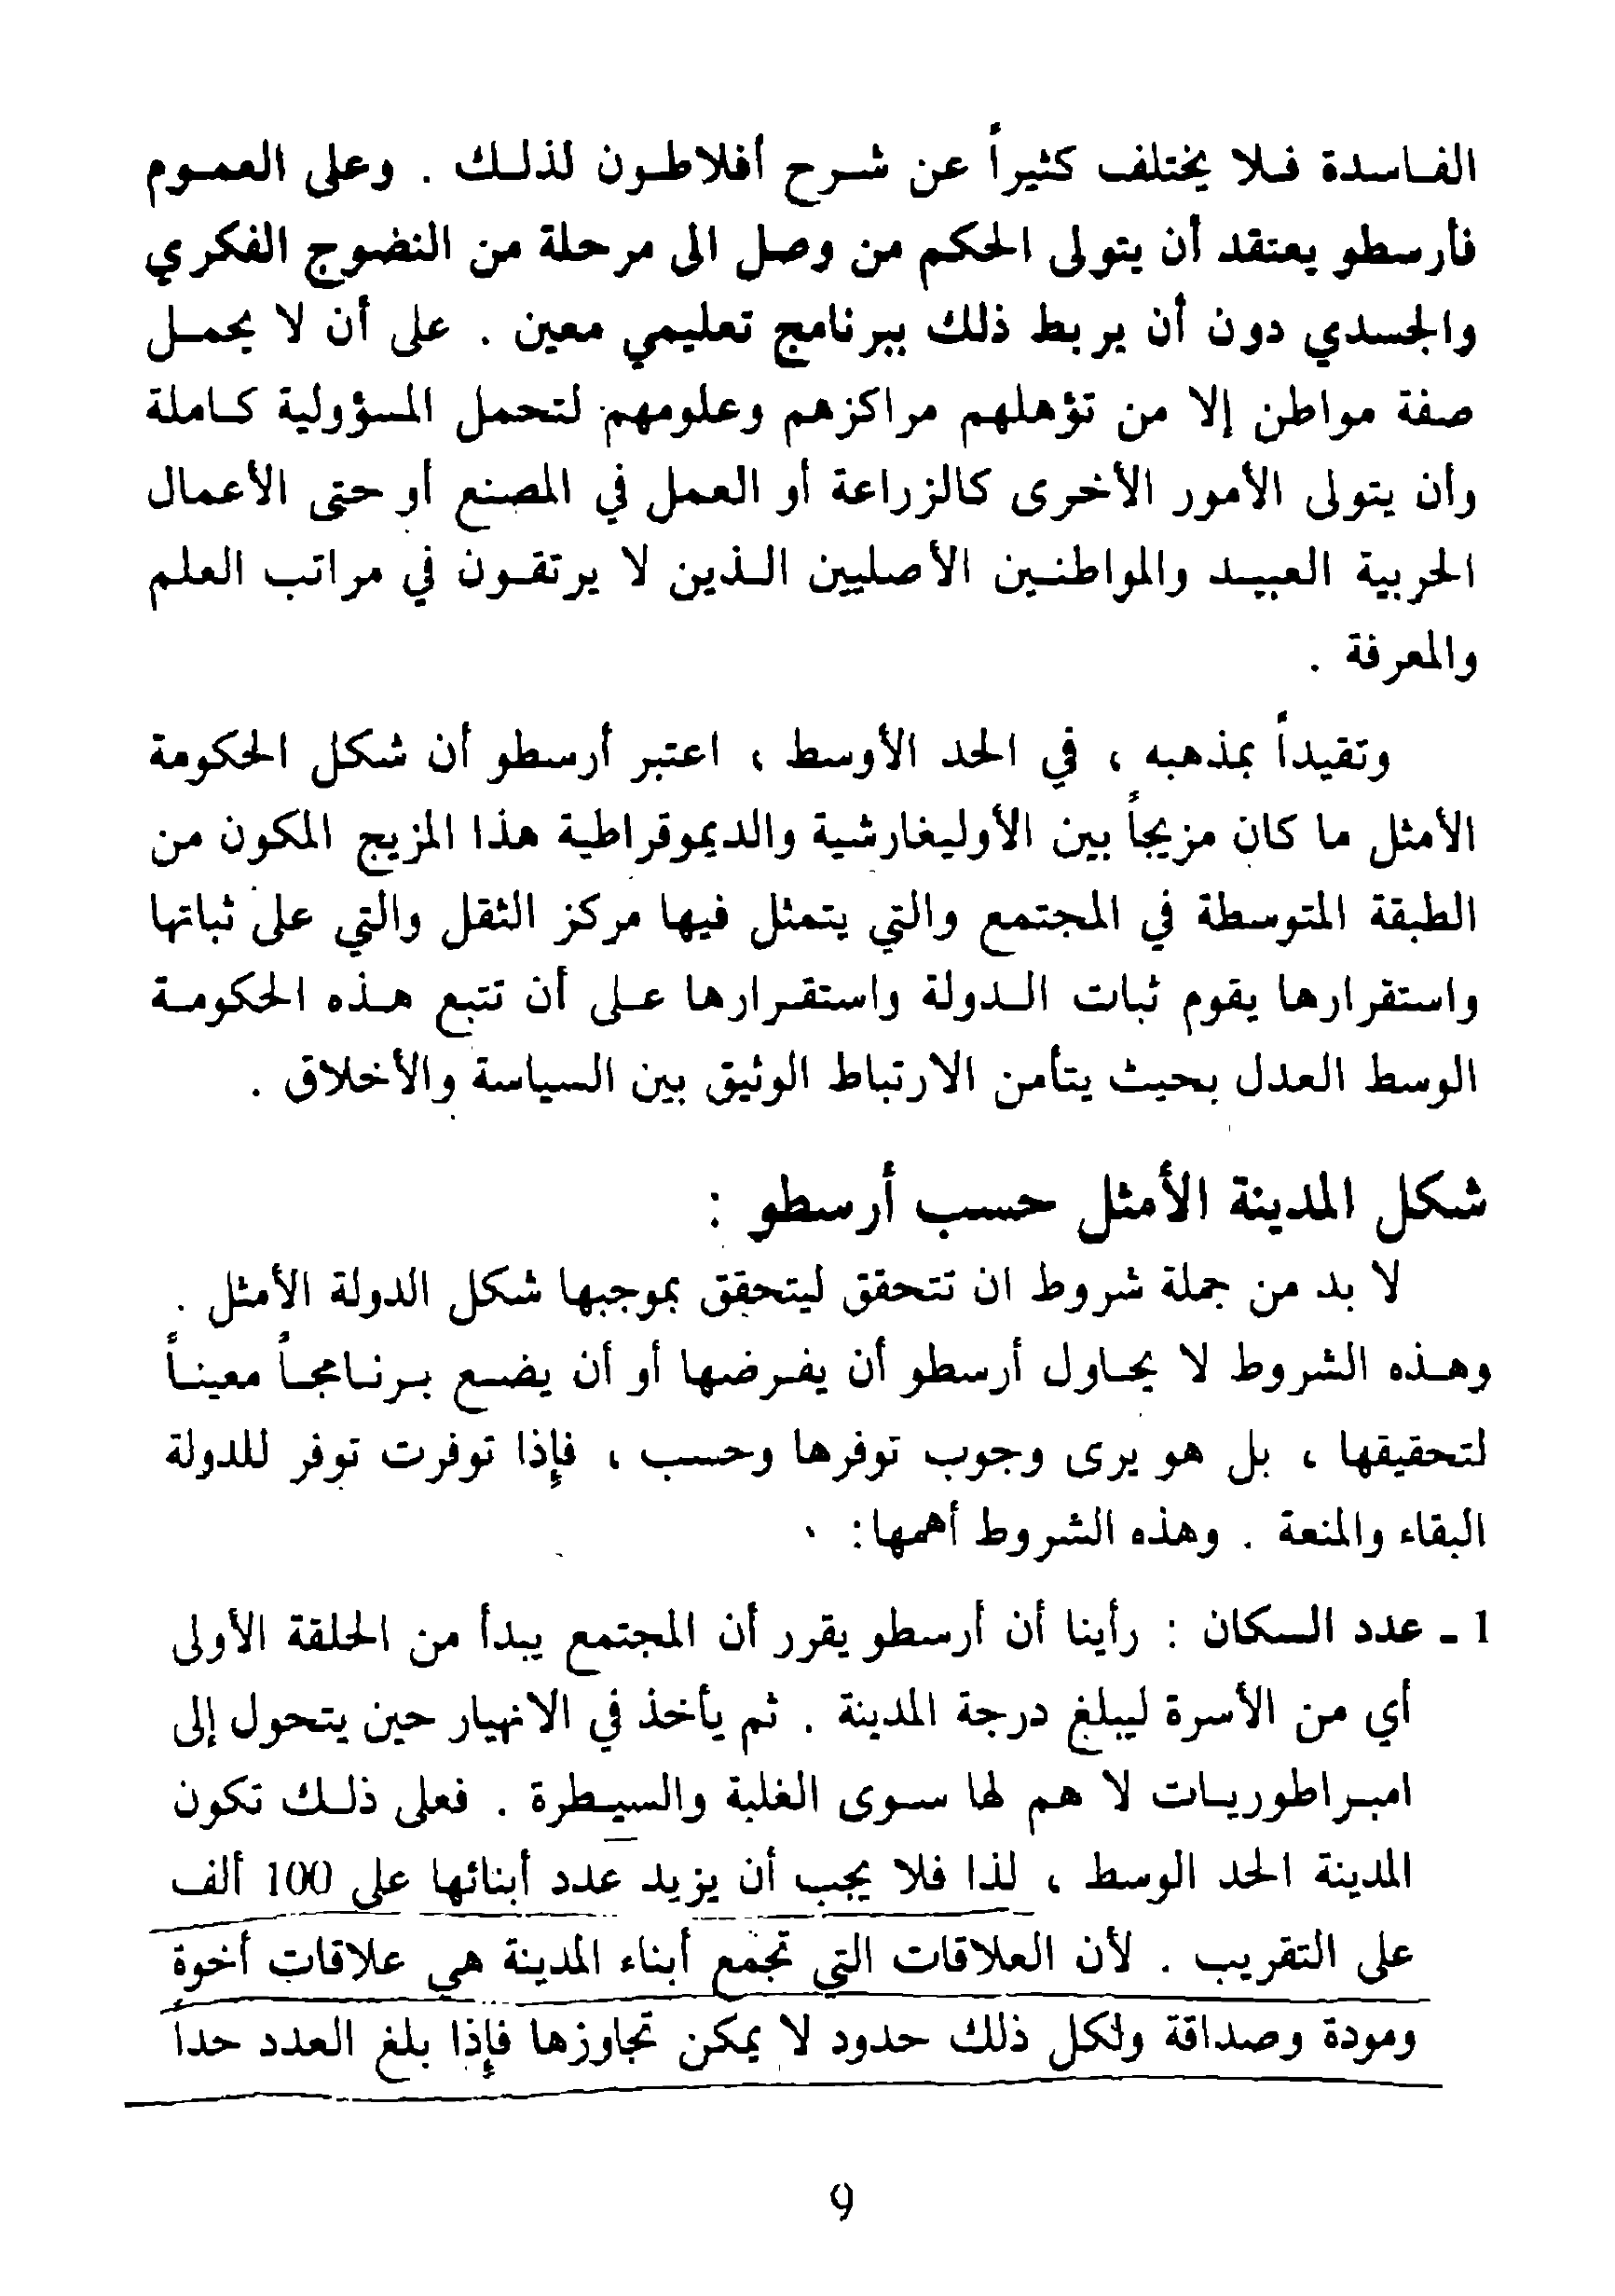 الفاسدة فلا يختلف كثيراً عن شرح أفلاطون لذلك . وعلى العموم
فأرسطو يعتقد أن يتولى الحكم من وصل الى مرحلة من النضوج الفكري
والجسدي دون أن يربط ذلك ببرنامج تعليمي معين . على أن لا يحمل
صفة مواطن إلا من تؤهلهم مراكزهم وعلومهم لتحمل المسؤولية كاملة
وأن يتولى الأمور الأخرى كالزراعة أو العمل في المصنع أو حتى الأعمال
الحربية العبيد والمواطنين الأصليين الذين لا يرتقون في مراتب العلم
والمعرفة .
وتقيداً بمذهبه ، في الحد الأوسط ، اعتبر أرسطو أن شكل الحكومة
الأمثل ما كان مزيجاً بين الأوليغارشية والديموقراطية هذا المزيج المكون من
الطبقة المتوسطة في المجتمع والتي يتمثل فيها مركز الثقل والتي على ثباتها
واستقرارها يقوم ثبات الدولة واستقرارها على أن تتبع هذه الحكومة
الوسط العدل بحيث يتأمن الارتباط الوثيق بين السياسة والأخلاق .
شكل المدينة الأمثل حسب أرسطو :
لا بد من جملة شروط ان تتحقق ليتحقق بموجبها شكل الدولة الأمثل .
وهذه الشروط لا يحاول أرسطو أن يفرضها أو أن يضع برنامجاً معيناً
لتحقيقها ، بل هو يرى وجوب توفرها وحسب ، فإذا توفرت توفر للدولة
البقاء والمنعة . وهذه الشروط أهمها :
1 - عدد السكان : رأينا أن أرسطو يقرر أن المجتمع يبدأ من الحلقة الأولى
أي من الأسرة ليبلغ درجة المدينة . ثم يأخذ في الانهيار حين يتحول إلى
امبراطوريات لا هم لها سوى الغلبة والسيطرة . فعلى ذلك تكون
المدينة الحد الوسط ، لذا فلا يجب أن يزيد عدد أبنائها على 100 ألف
على التقريب . لأن العلاقات التي تجمع أبناء المدينة هي علاقات أخوة
ومودة وصداقة ولكل ذلك حدود لا يمكن تجاوزها فإذا بلغ العدد حداً
9